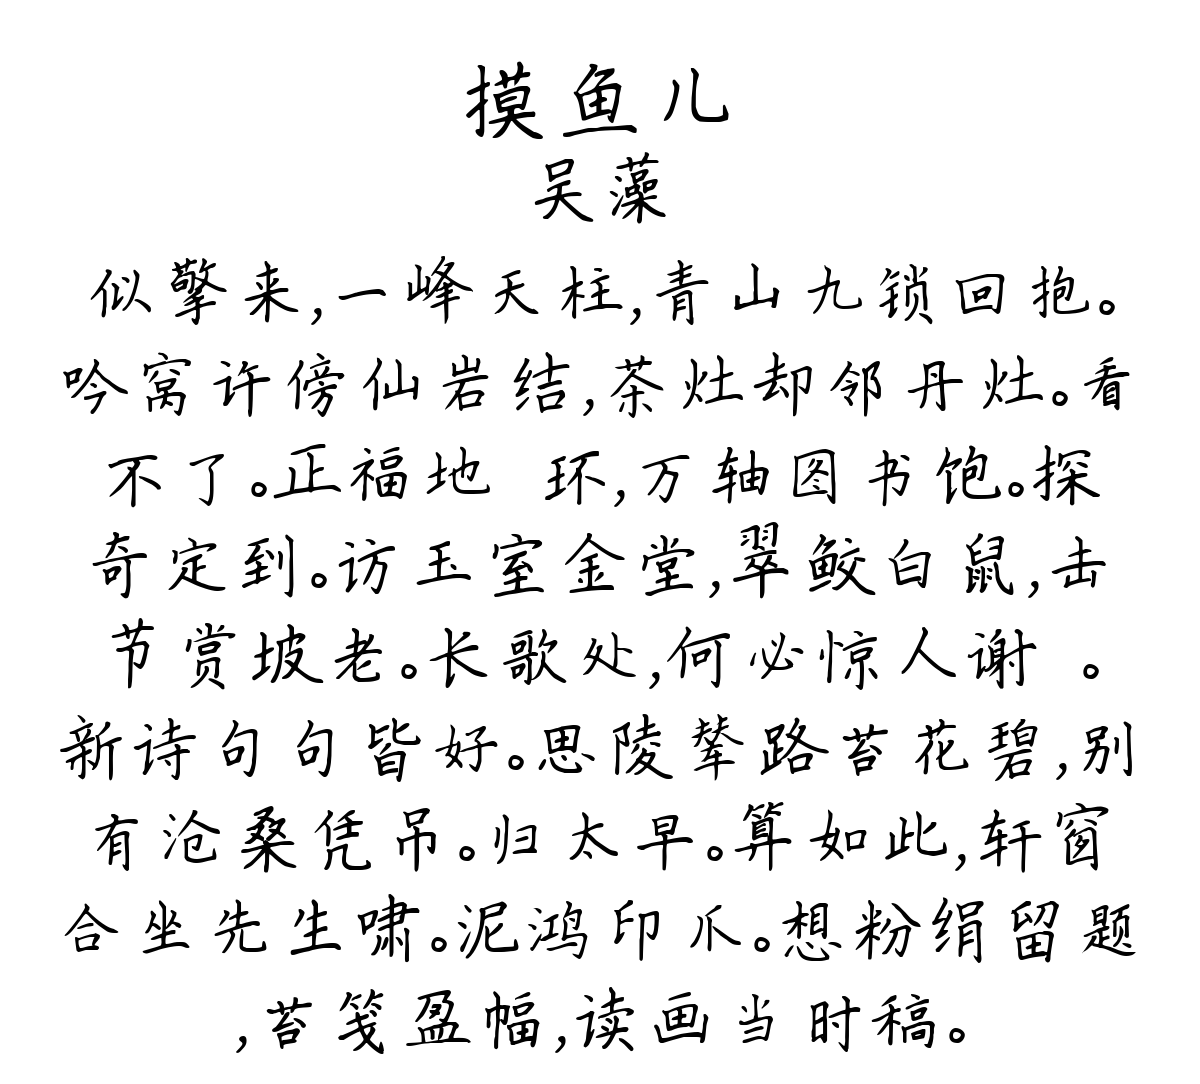 摸鱼儿
吴藻
似擎来,一峰天柱,青山九锁回抱。
吟窝许傍仙岩结,茶灶却邻丹灶。看
不了。正福地 环,万轴图书饱。探
奇定到。访玉室金堂,翠鲛白鼠,击
节赏坡老。长歌处,何必惊人谢 。
新诗句句皆好。思陵辇路苔花碧,别
有沧桑凭吊。归太早。算如此,轩窗
合坐先生啸。泥鸿印爪。想粉绢留题
,苔笺盈幅,读画当时稿。